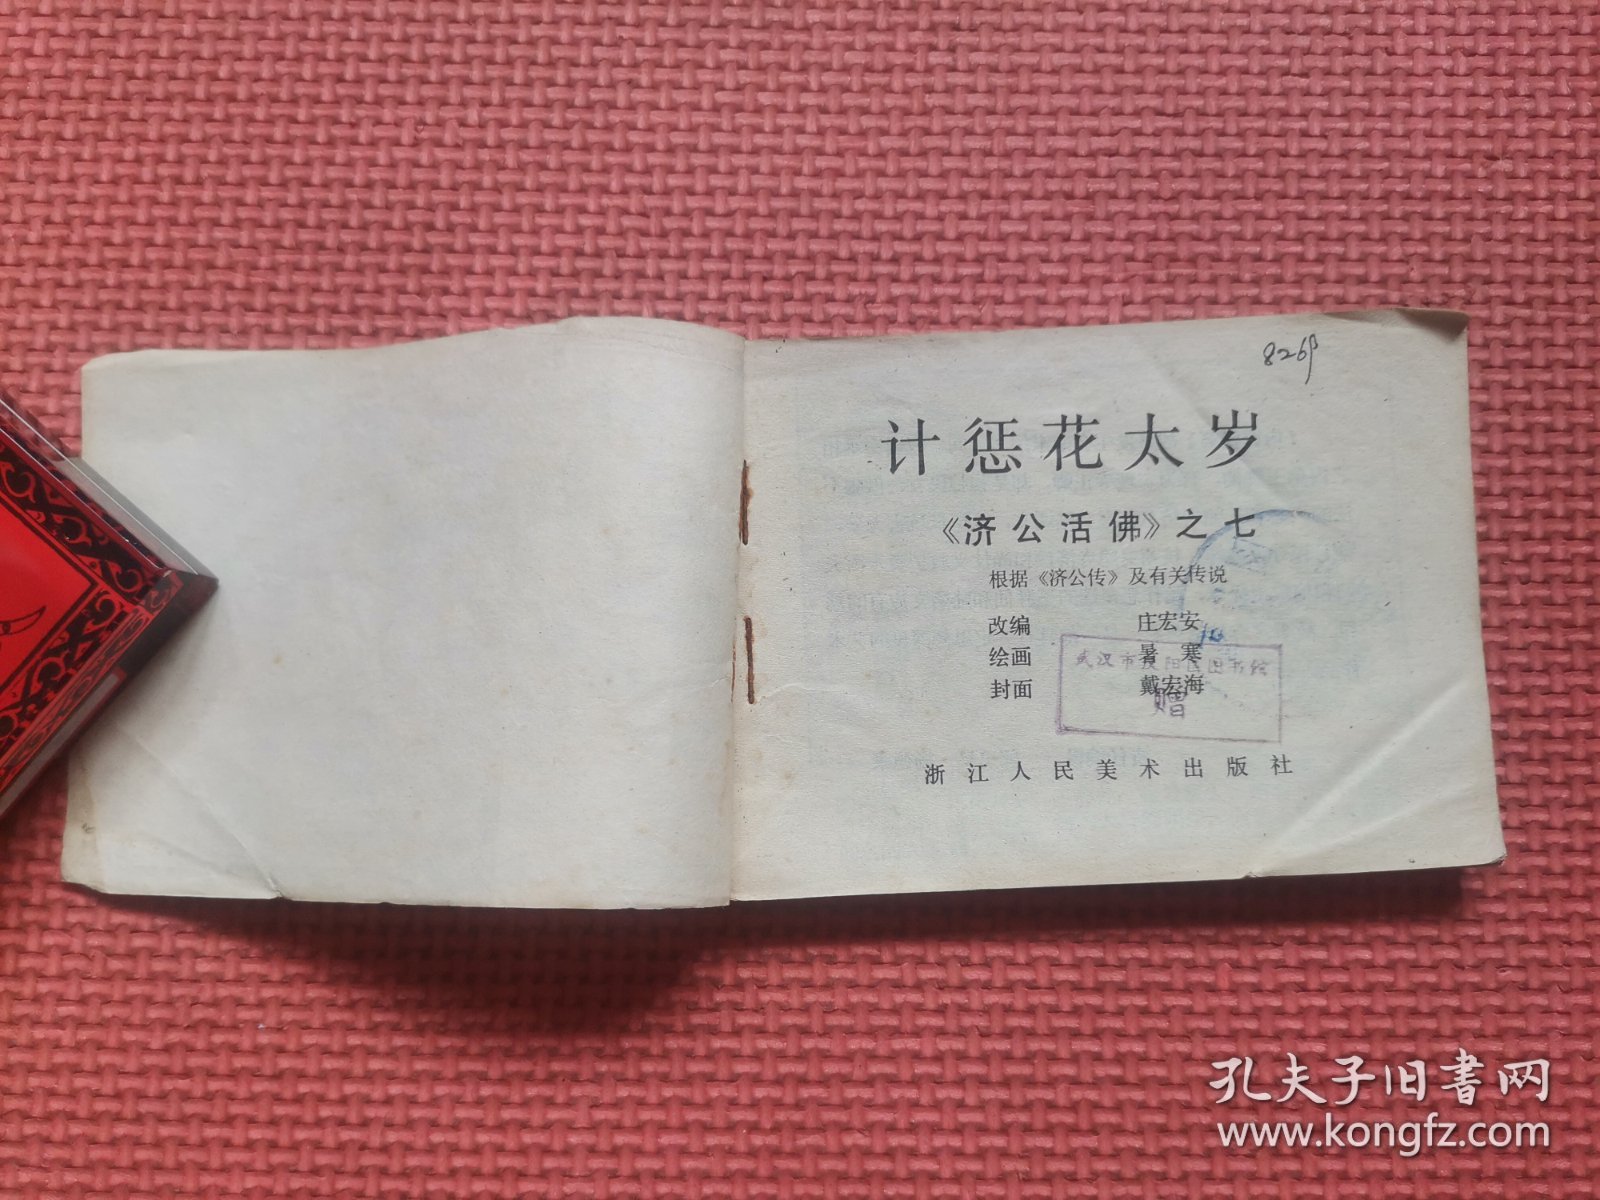 826
计惩花太岁
《济公活佛》之七
根据《济公传》及有关传说
改编 庄宏安
绘画 暑寒
封面 戴宏海
武汉市汉阳区图书馆
赠
浙江人民美术出版社
孔夫子旧書网
www.kongfz.com